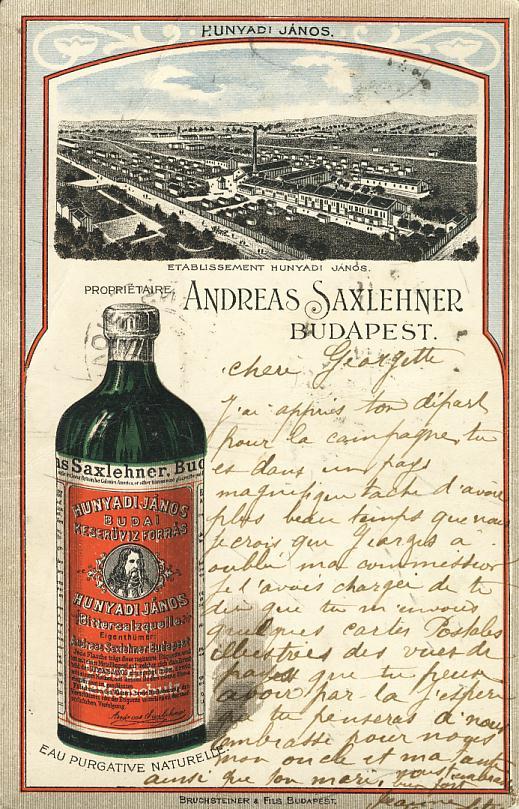 HUNYADI JÁNOS.
ETABLISSEMENT HUNYADI JÁNOS.
PROPRIÉTAIRE
ANDREAS SAXLEHNER
BUDAPEST.
cheri Georgette
J'ai appris ton départ
pour la campagne, tu
es dans un pays
magnifique tache d'avoir
plus beau temps que nous
je crois que Georges a
oublié ma commission
je l'avais charger de te
dire que tu m'envois
quelques cartes Postales
illustrées des vues de
que tu peux
avoir par la j'espère
que tu penseras à nous
embrasse pour nous
mon oncle et ma tante
ainsi que ton mari
vous embrasse
bien fort
ns Saxlehner, Bud
HUNYADI JÁNOS
BUDAI
KESERÜVIZ FORRÁS
HUNYADI JÁNOS
Bittersalzquelle
Eigenthümer:
Andreas Saxlehner Budapest
Andreas Saxlehner
EAU PURGATIVE NATURELLE
BRUCHSTEINER & FILS BUDAPEST.